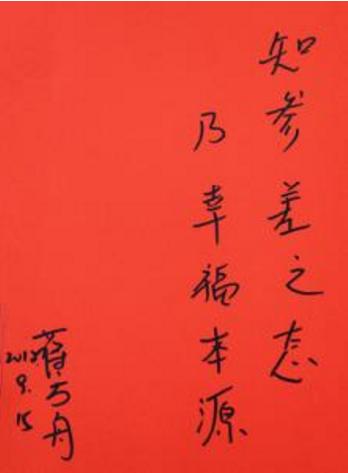 知参差之态
乃幸福本源
蒋方舟
2012
9.15